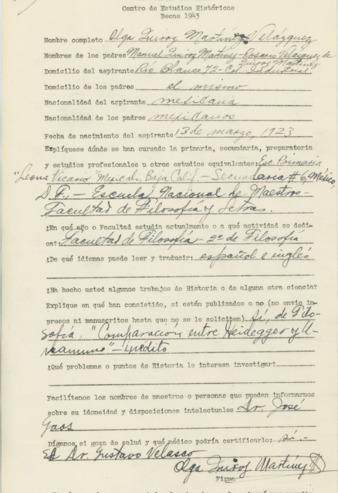 Centro de Estudios Históricos
Becas 1943
Nombre completo Olga Quiroz Martínez Velázquez
Nombres de los padres Manuel Quiroz Martínez - Rosario Velázquez de
Quiroz Martínez
Domicilio del aspirante Río Blanco 72 - Col. Industrial.
Domicilio de los padres el mismo
Nacionalidad del aspirante mexicana
Nacionalidad de los padres mexicanos
Fecha de nacimiento del aspirante 13 de marzo, 1923
Explíquese dónde se han cursado la primaria, secundaria, preparatoria
y estudios profesionales u otros estudios equivalentes: Esc. Primaria
"Leona Vicario" Mexicali, Baja Cal. - Secundaria # 6, México,
D.F. - Escuela Nacional de Maestros -
Facultad de Filosofía y Letras.
¿En qué año o Facultad estudia actualmente o a qué actividad se dedi-
ca? Facultad de Filosofía - 2º de Filosofía
¿De qué idiomas puede leer y traducir: español e inglés
¿Ha hecho usted algunos trabajos de Historia o de alguna otra ciencia?
Explique en qué han consistido, si están publicados o no (no envío im-
presos ni manuscritos hasta que no se le soliciten) Sí, de Filo-
sofía. "Comparación entre Heidegger y U-
namuno" - inédito
¿Qué problemas o puntos de Historia le interesa investigar?
Facilítenos los nombres de maestros o personas que puedan informarnos
sobre su idoneidad y disposiciones intelectuales Dr. José
Gaos
Díganos si goza de salud y qué médico podría certificarlo: sí -
El Dr. Gustavo Velasco
Olga Quiroz Martínez
Firma